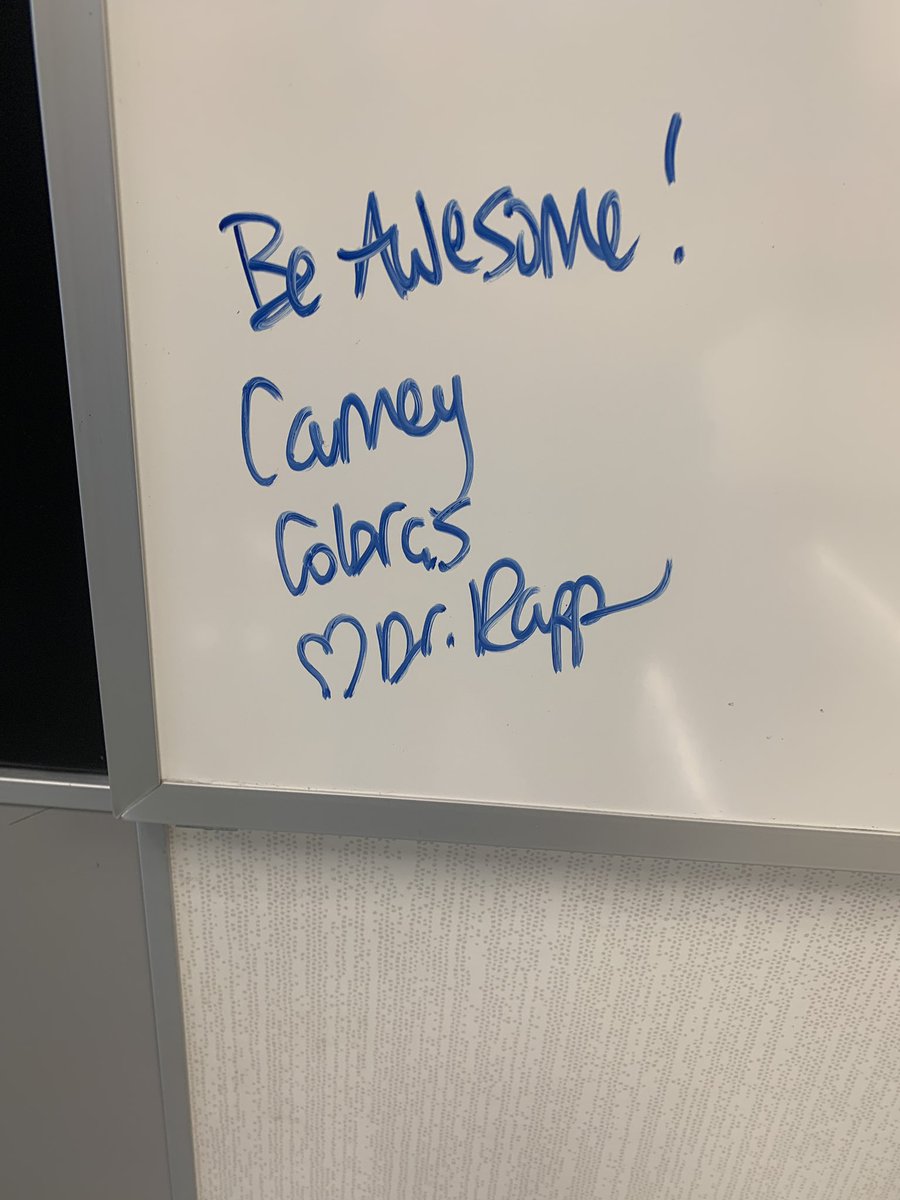 Be Awesome!
Camey
Cobras
♡ Dr. Rapp